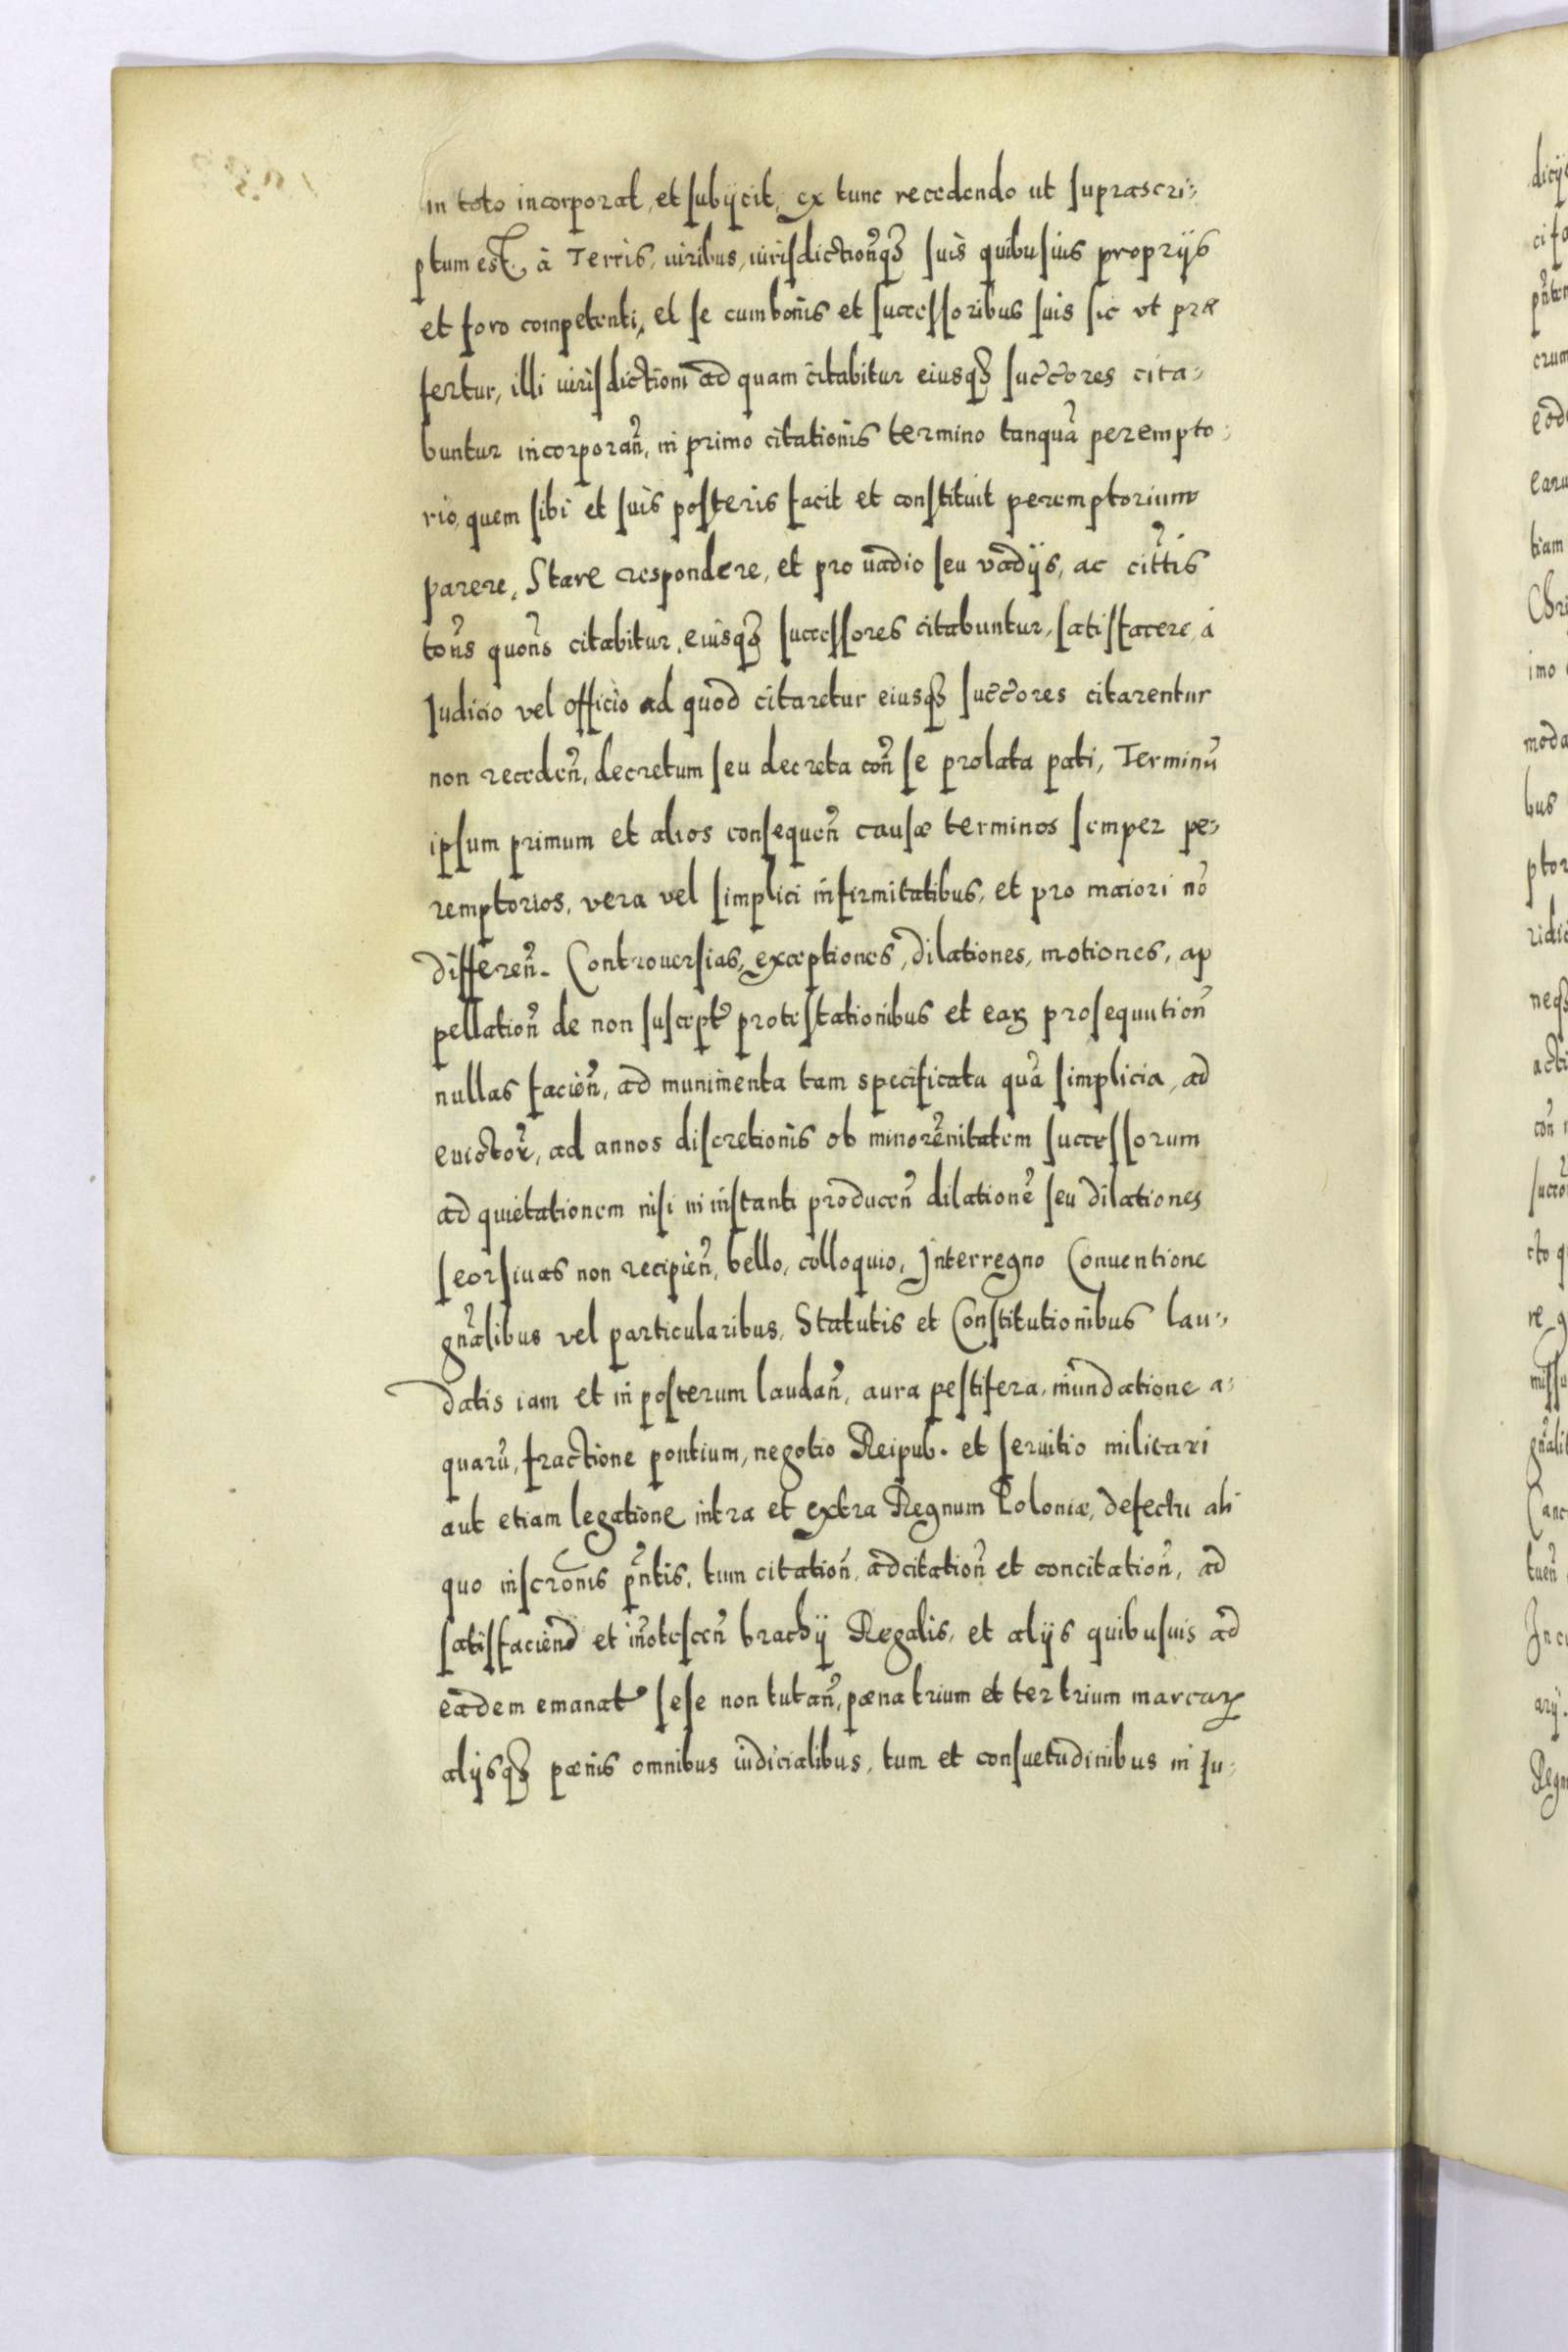 in toto incorporat, et subijcit, ex tunc recedendo ut suprascri-
ptum est, à Terris, iuribus, iurisdictioñqȝ suis quibusuis proprijs
et foro competenti, et se cum bonis et successoribus suis sic ut præ
fertur, illi iurisdictioni ad quam citabitur eiusqȝ succ̃ores cita-
buntur incorporañ, in primo citationis termino tanquã perempto-
rio, quem sibi et suis posteris facit et constituit peremptorium
parere, Stare respondere, et pro uadio seu vadijs, ac cit̃tis
tõns quoñs citabitur, eiusqȝ successores citabuntur, satisfacere, à
Iudicio vel officio ad quod citaretur eiusqȝ succ̃ores citarentur
non recedeñ, decretum seu decreta coñ se prolata pati, Terminũ
ipsum primum et alios consequeñ causæ terminos semper pe-
remptorios, vera vel simplici infirmitatibus, et pro maiori nõ
differeñ. Controuersias, exceptiones, dilationes, motiones, ap
pellatioñ de non suscept̃ protestationibus et eaꝝ prosequutioñ
nullas facieñ, ad munimenta tam specificata quã simplicia, ad
euictor̃, ad annos discretionis ob minorẽnitatem successorum
ad quietationem nisi in instanti produceñ dilationẽ seu dilationes
seorsiuas non recipieñ, bello, colloquio, Interregno Conuentione
gñalibus vel particularibus, Statutis et Constitutionibus lau-
datis iam et in posterum laudañ, aura pestifera, inundatione a-
quarũ, fractione pontium, negotio Reipub. et seruitio militari
aut etiam legatione intra et extra Regnum Poloniæ, defectu ali
quo inscr̃onis p̃ntis, tum citatioñ, adcitatioñ et concitatioñ, ad
satisfaciend̃ et iñotesceñ brachij Regalis, et alijs quibusuis ad
eadem emanat̃ sese non tutañ, pæna trium et ter trium marcaꝝ
alijsqȝ pænis omnibus iudicialibus, tum et consuetudinibus in Iu-